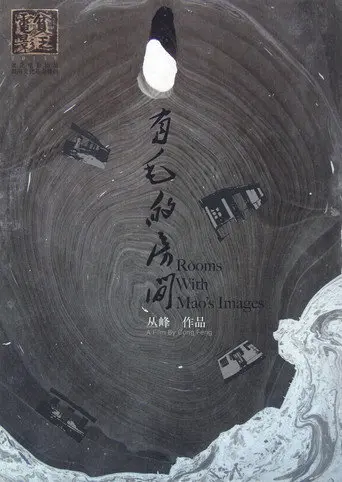 有毛的房间
Rooms
With
Mao's Images
丛峰 作品
A Film By Cong Feng